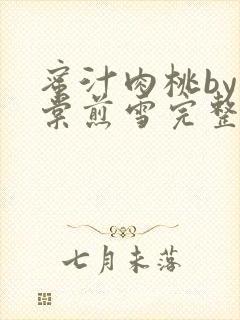 蜜汁肉桃by
棠煎雪完整
七月未落